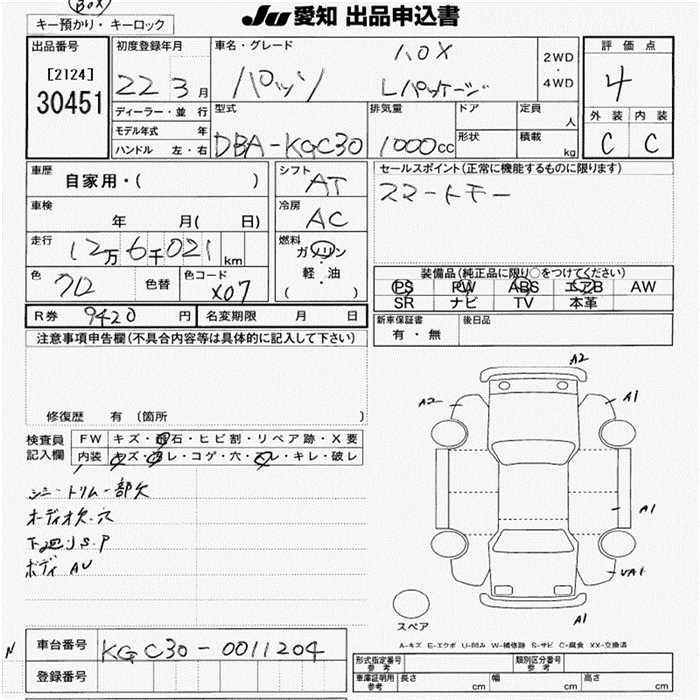 BOX
キー預かり・キーロック
JU 愛知 出品申込書
出品番号
[2124]
30451
初度登録年月
22 3月
ディーラー・並行
モデル年式 年
ハンドル 左・右
車名・グレード
ハロX
パッソ Lパッケージ
2WD
・
4WD
型式
DBA-KGC30
排気量
1000cc
ドア
形状
定員
人
積載
kg
評価点
4
外装 内装
C C
車歴
自家用・( )
車検
年 月( 日)
走行
12万6千021km
色
クロ
色替
色コード
X07
シフト
AT
冷房
AC
燃料
ガソリン
・
軽・油
( )
セールスポイント(正常に機能するものに限ります)
スマートキー
装備品(純正品に限り○をつけてください)
PS PW ABS エアB AW
SR ナビ TV 本革
R券 9420 円
名変期限 月 日
新車保証書
有・無
後日品
注意事項申告欄(不具合内容等は具体的に記入して下さい)
修復歴 有 (箇所 )
検査員
記入欄
FW キズ・飛石・ヒビ割・リペア跡・X要
内装 キズ・ヨゴレ・コゲ・穴・スレ・キレ・破レ
シミ トリム一部欠
オーディオ欠・穴
下廻りS.P
ボディ AU
A2
A2
A1
A1
UA1
A1
スペア
A-キズ E-エクボ U-凹み W-補修跡 S-サビ C-腐食 XX-交換済
N
車台番号
KGC30-0011204
登録番号
形式指定番号
参考
類別区分番号
参考
車庫証明用
参考
長さ cm
幅 cm
高さ cm